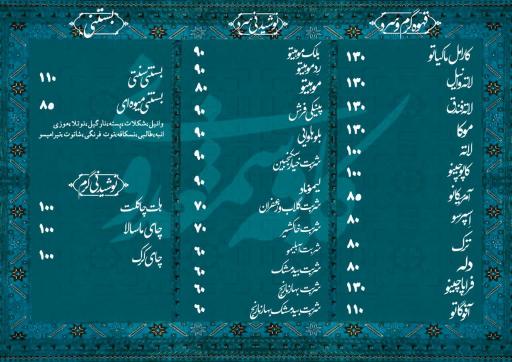 قهوه گرم و سرد
کارامل ماکیاتو ۱۳۰
لاته وانیل ۱۳۰
لاته فندق ۱۳۰
موکا ۱۳۰
لاته ۱۰۰
کاپوچینو ۱۰۰
آمریکانو ۸۵
اسپرسو ۸۰
ترک ۸۰
دله ۸۰
فراپاچینو ۱۳۰
آفوگاتو ۱۱۰
نوشیدنی سرد
بلک موهیتو ۹۰
رد موهیتو ۹۰
موهیتو ۸۰
پلنگی فرش ۹۰
بلو هاوایی ۹۰
شربت خیار سکنجبین ۹۰
لیموناد ۹۰
شربت گلاب و زعفران ۷۰
شربت خاکشیر ۷۰
شربت آبلیمو ۶۰
شربت بیدمشک ۶۰
شربت بهارنارنج ۶۰
شربت بیدمشک بهارنارنج ۶۰
بستنی
بستنی سنتی ۱۱۰
بستنی میوه‌ای ۸۵
وانیل،شکلات،پسته،نارگیل،نوتلا،موزی
انبه،طالبی،نسکافه،توت فرنگی،شاتوت،تیرامیسو
نوشیدنی گرم
هات چاکلت ۱۰۰
چای ماسالا ۱۰۰
چای کرک ۱۰۰